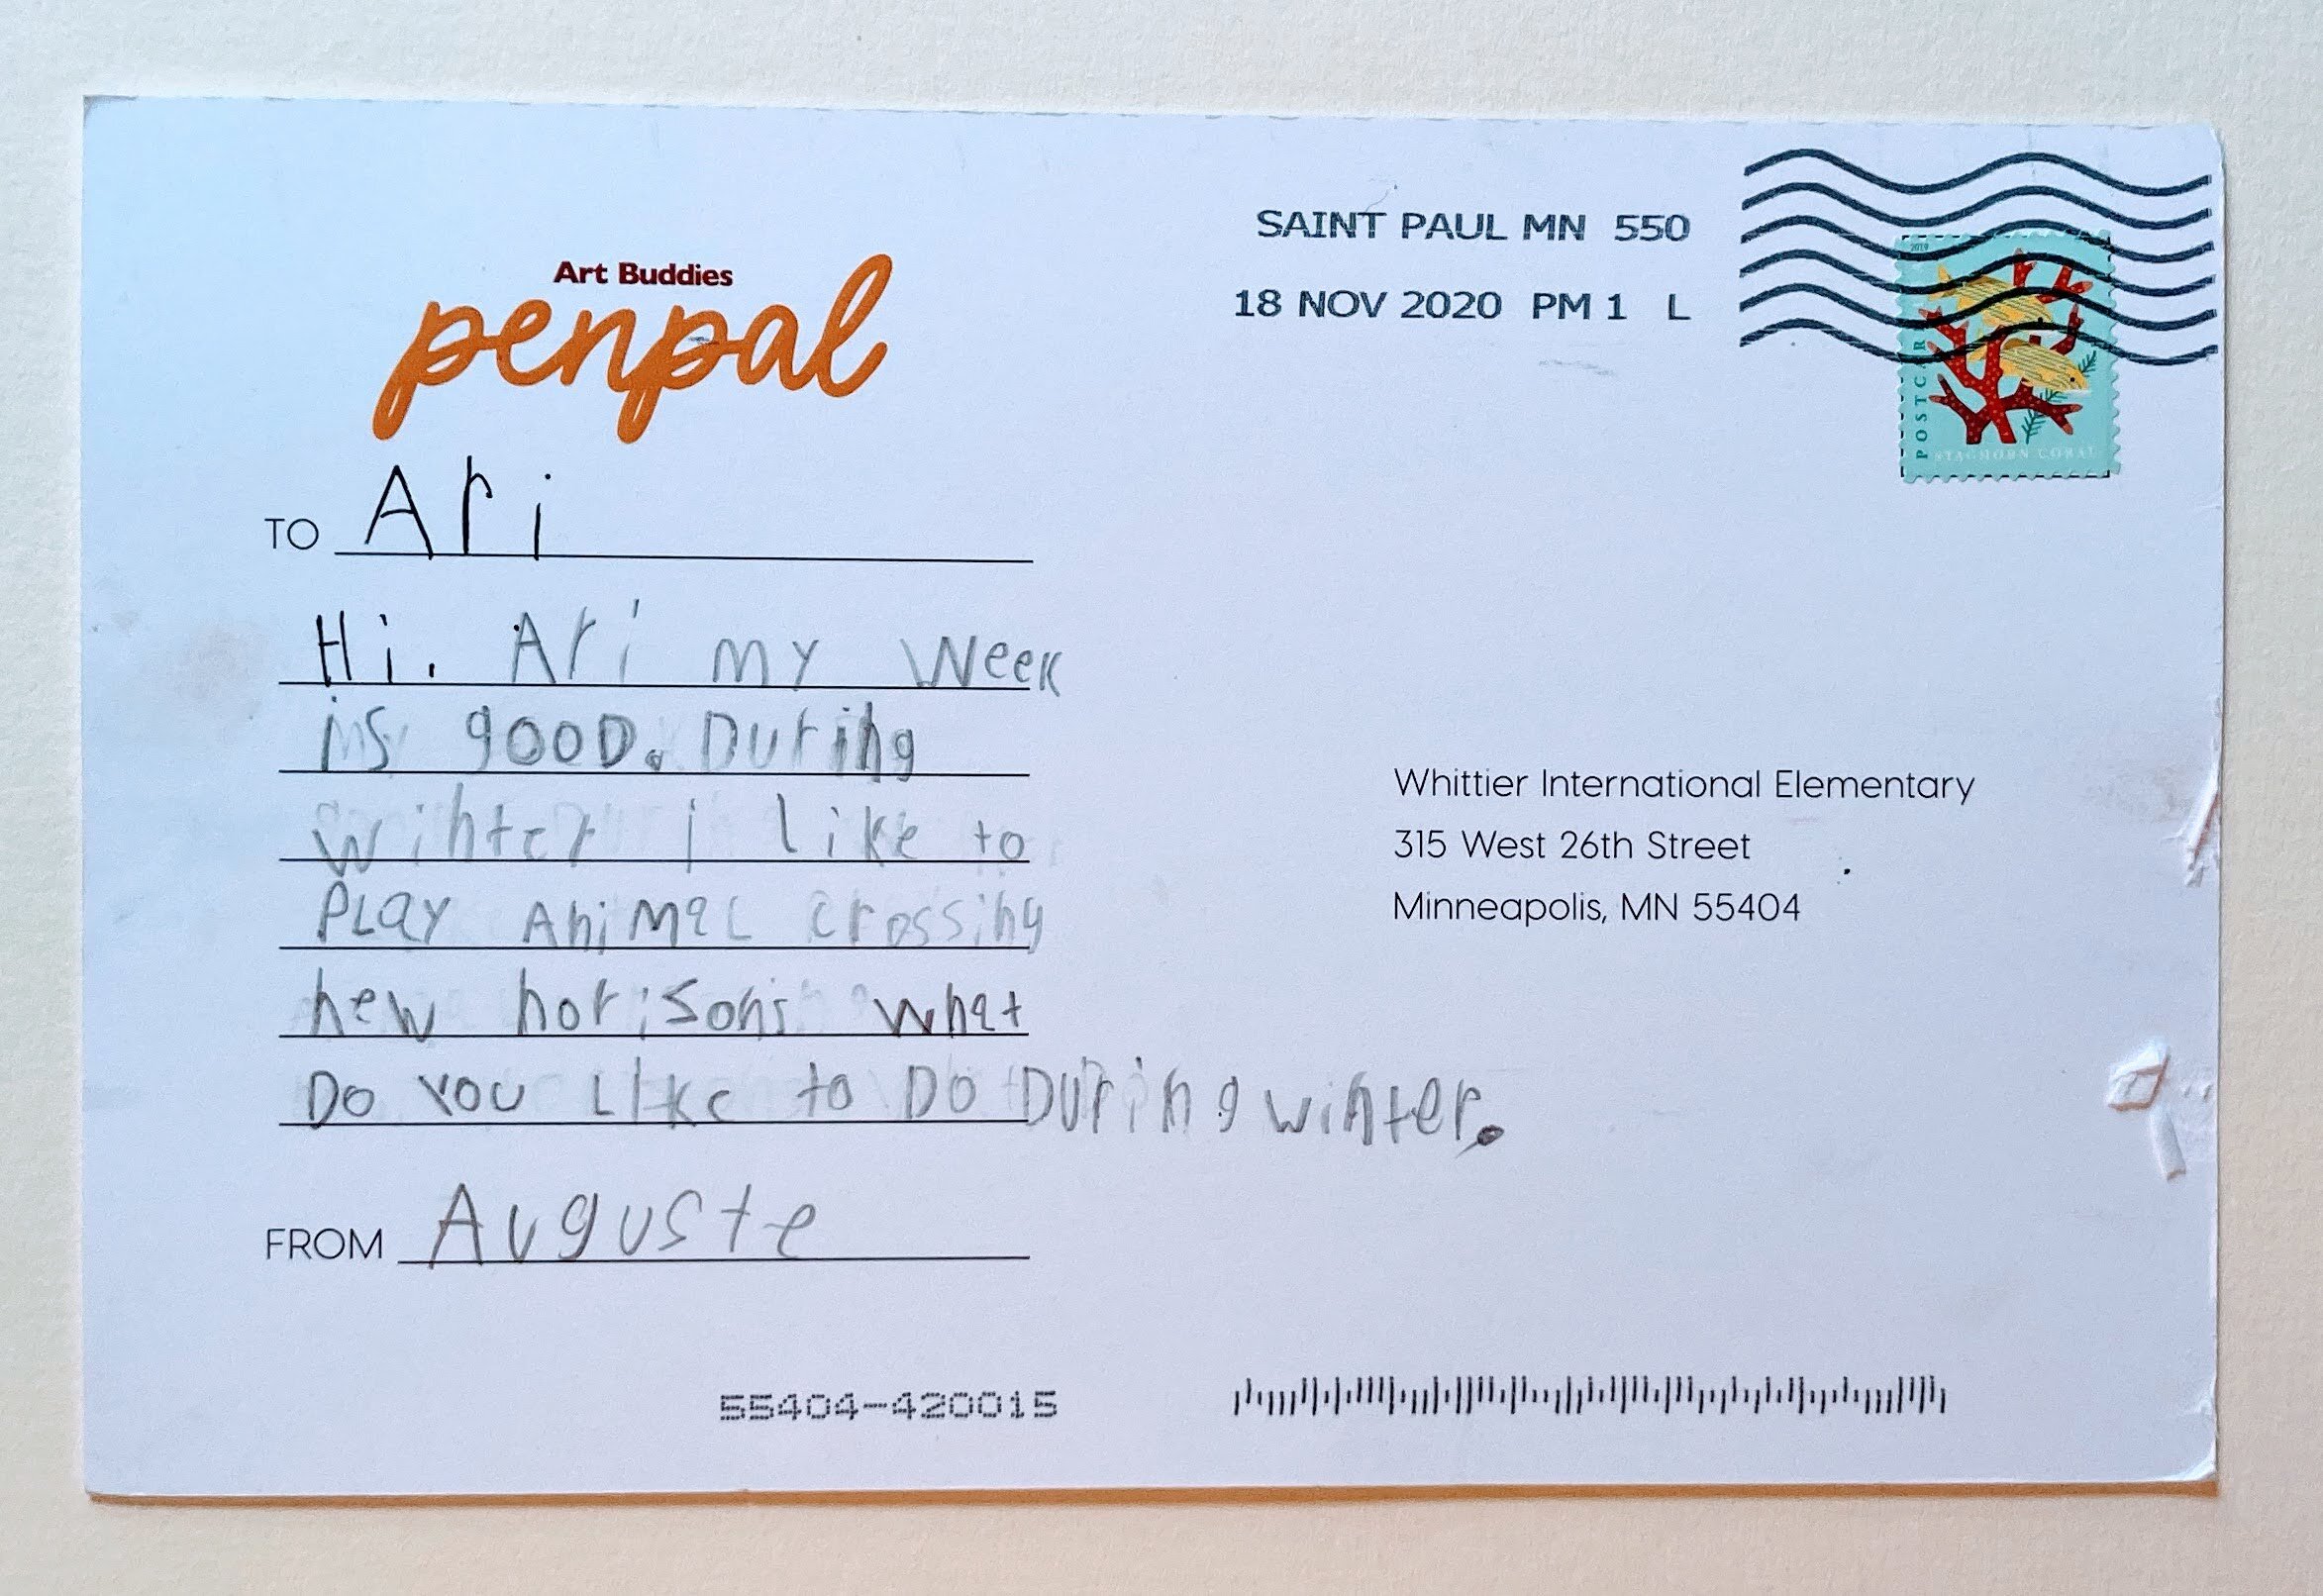 SAINT PAUL MN 550
18 NOV 2020 PM 1 L
2019
POSTCARD
STAGHORN CORAL
Art Buddies
penpal
TO Ari
Hi. Ari my week
is gooD. During
winter i like to
PLay AniMaL crossing
new horisons what
Do you Like to Do During winter.
FROM Auguste
Whittier International Elementary
315 West 26th Street
Minneapolis, MN 55404
55404-420015